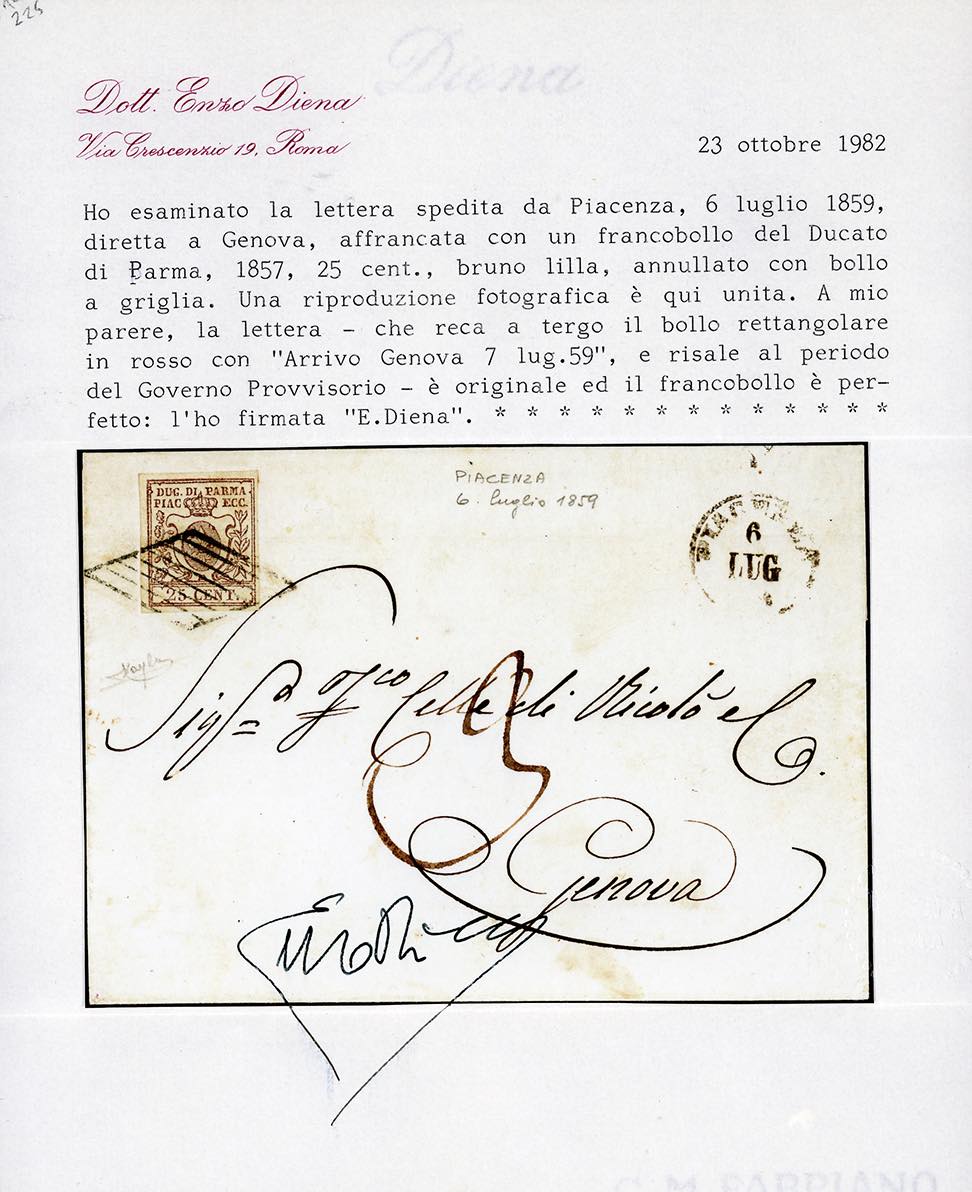 225
Diena
Dott. Enzo Diena
Via Crescenzio 19, Roma
23 ottobre 1982
Ho esaminato la lettera spedita da Piacenza, 6 luglio 1859,
diretta a Genova, affrancata con un francobollo del Ducato
di Parma, 1857, 25 cent., bruno lilla, annullato con bollo
a griglia. Una riproduzione fotografica è qui unita. A mio
parere, la lettera - che reca a tergo il bollo rettangolare
in rosso con "Arrivo Genova 7 lug.59", e risale al periodo
del Governo Provvisorio - è originale ed il francobollo è per-
fetto: l'ho firmata "E.Diena". * * * * * * * * * * * * *
DUC. DI PARMA
PIAC. ECC.
25 CENT.
PIACENZA
6. luglio 1859
PIACENZA
6
LUG
Celle di Nicolò e C.
Genova
G. M. FABBIANO